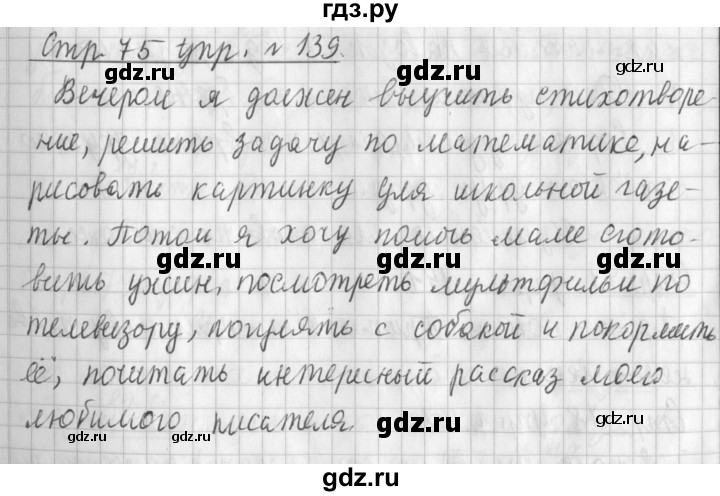 гдз.ру
Стр 75 упр. № 139.
gdz.ru gdz.ru
Вечером я должен выучить стихотворе-
ние, решить задачу по математике, на-
gdz.ru gdz.ru
рисовать картинку для школьной газе-
ты. Потом я хочу помочь маме сгото-
gdz.ru gdz.ru
вить ужин, посмотреть мультфильм по
телевизору, погулять с собакой и покормить
gdz.ru gdz.ru
её, почитать интересный рассказ моего
любимого писателя.
gdz.ru gdz.ru gdz.ru gdz.ru
gdz.ru